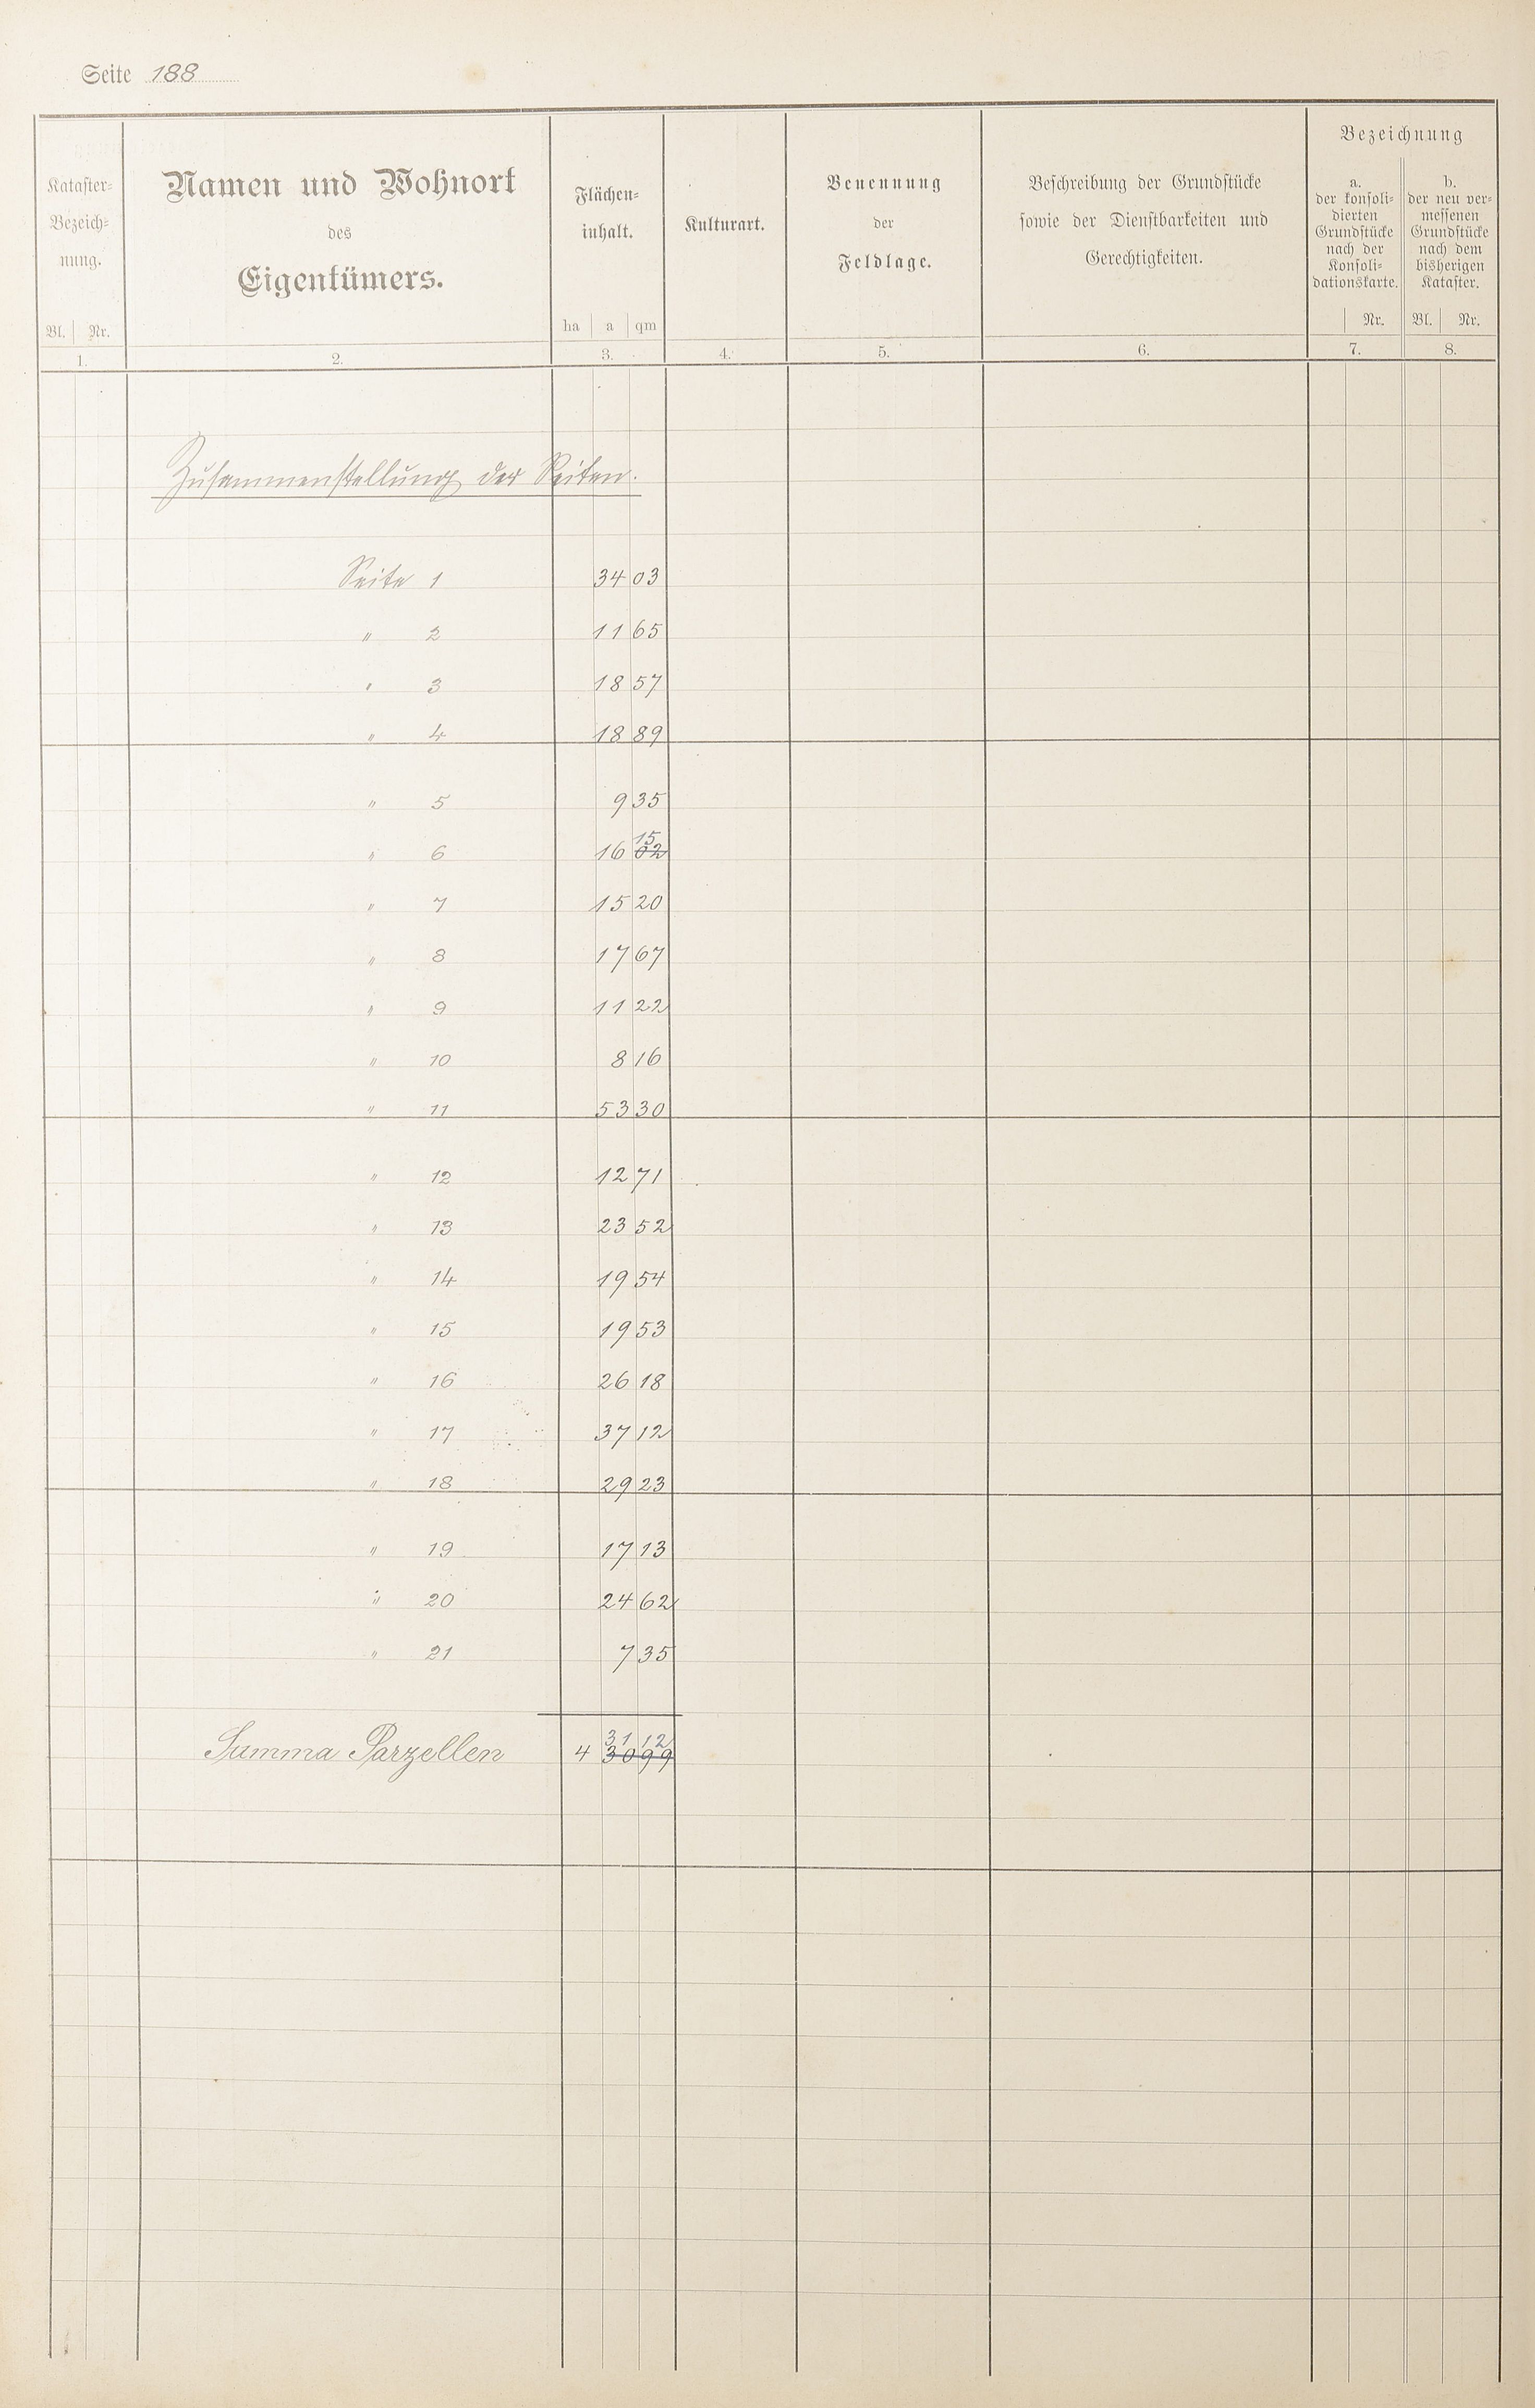 Seite 188
Kataster-
Bezeich-
nung.
Bl. Nr.
1.
Namen und Wohnort
des
Eigentümers.
2.
Flächen-
inhalt.
ha a qm
3.
Kulturart.
4.
Benennung
der
Feldlage.
5.
Beschreibung der Grundstücke
sowie der Dienstbarkeiten und
Gerechtigkeiten.
6.
Bezeichnung
a.
der konsoli-
dierten
Grundstücke
nach der
Konsoli-
dationskarte.
Nr.
7.
b.
der neu ver-
messenen
Grundstücke
nach dem
bisherigen
Kataster.
Bl. Nr.
8.
Zusammenstellung der Seiten.
Seite 1 34 03
" 2 11 65
" 3 18 57
" 4 18 89
" 5 9 35
15
" 6 16 02
" 7 15 20
" 8 17 67
" 9 11 22
" 10 8 16
" 11 53 30
" 12 12 71
" 13 23 52
" 14 19 54
" 15 19 53
" 16 26 18
" 17 37 12
" 18 29 23
" 19 17 13
" 20 24 62
" 21 7 35
31 12
Summa Parzellen 4 30 99